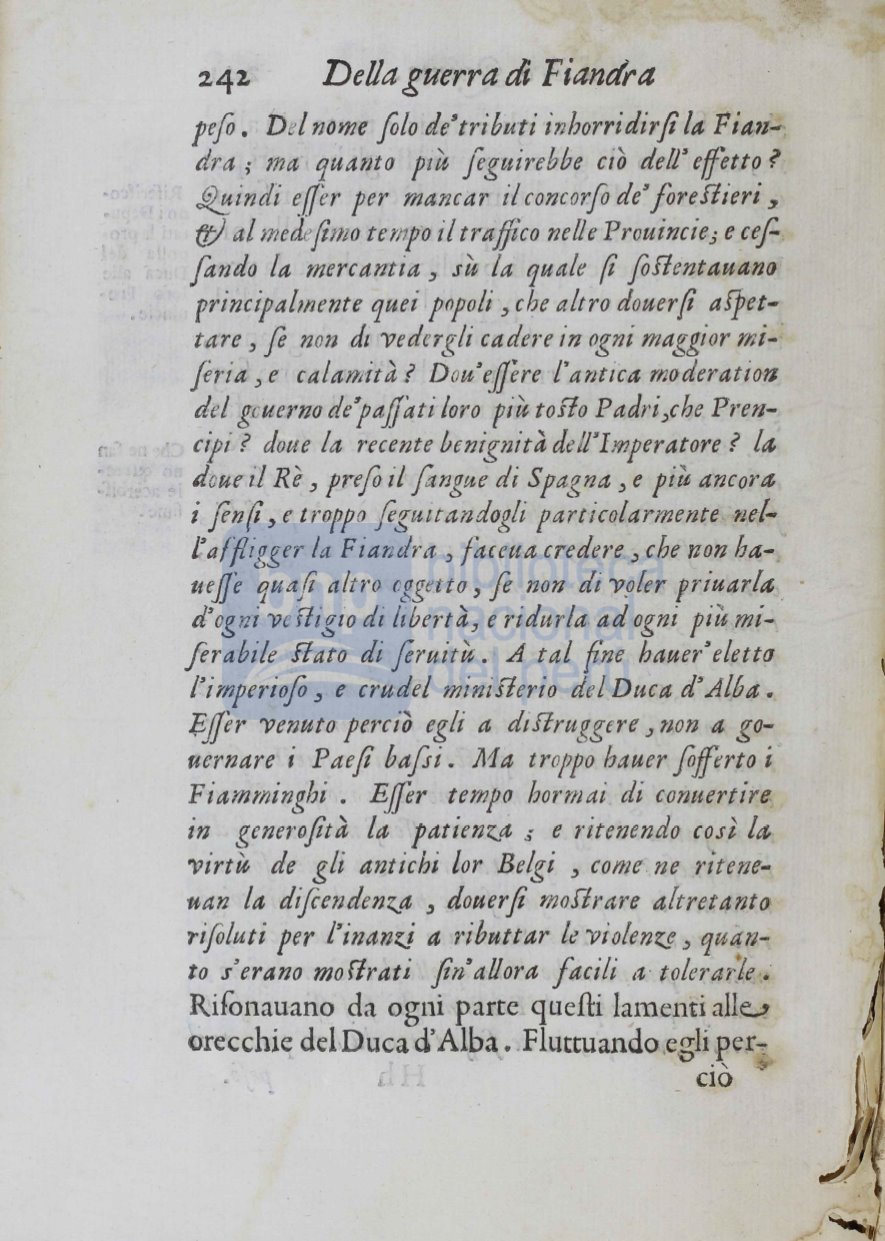 242 Della guerra di Fiandra
peſo. Del nome ſolo de' tributi inhorridirſi la Fian-
dra; ma quanto più ſeguirebbe ciò dell' effetto?
Quindi eſſer per mancar il concorſo de' foreſtieri,
& al medeſimo tempo il traffico nelle Prouincie; e ceſ-
ſando la mercantia, sù la quale ſi ſoſtentauano
principalmente quei popoli, che altro douerſi aſpet-
tare, ſe non di vedergli cadere in ogni maggior mi-
ſeria, e calamità? Dou'eſſere l'antica moderation
del gouerno de' paſſati loro più toſto Padri, che Pren-
cipi? doue la recente benignità dell'Imperatore? la
doue il Rè, preſo il ſangue di Spagna, e più ancora
i ſenſi, e troppo ſeguitandogli particolarmente nel-
l'affligger la Fiandra, faceua credere, che non ha-
ueſſe quaſi altro oggetto, ſe non di voler priuarla
d'ogni veſtigio di libertà, e ridurla ad ogni più mi-
ſerabile ſtato di ſeruitù. A tal fine hauer'eletto
l'imperioſo, e crudel miniſterio del Duca d'Alba.
Eſſer venuto perciò egli a diſtruggere, non a go-
uernare i Paeſi baſsi. Ma troppo hauer ſofferto i
Fiamminghi. Eſſer tempo hormai di conuertire
in generoſità la patienza; e ritenendo così la
virtù de gli antichi lor Belgi, come ne ritene-
uan la diſcendenza, douerſi moſtrare altretanto
riſoluti per l'inanzi a ributtar le violenze, quan-
to s'erano moſtrati ſin'allora facili a tolerarle.
Riſonauano da ogni parte queſti lamenti alle
orecchie del Duca d'Alba. Fluttuando egli per-
ciò
biblioteca
nacional
del perú